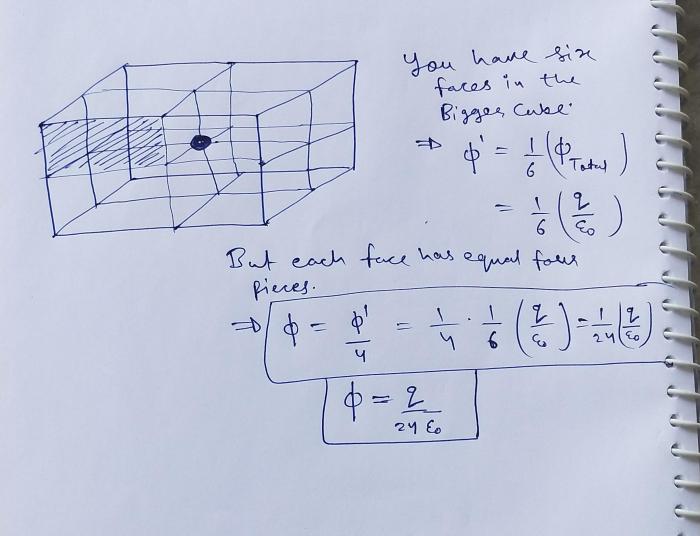 You have six
faces in the
Bigger Cube.
⇒ ϕ' = 1/6 (ϕTotal)
= 1/6 (q/ε₀)
But each face has equal four
pieces.
⇒ ϕ = ϕ'/4 = 1/4 · 1/6 (q/ε₀) = 1/24 (q/ε₀)
ϕ = q/24 ε₀